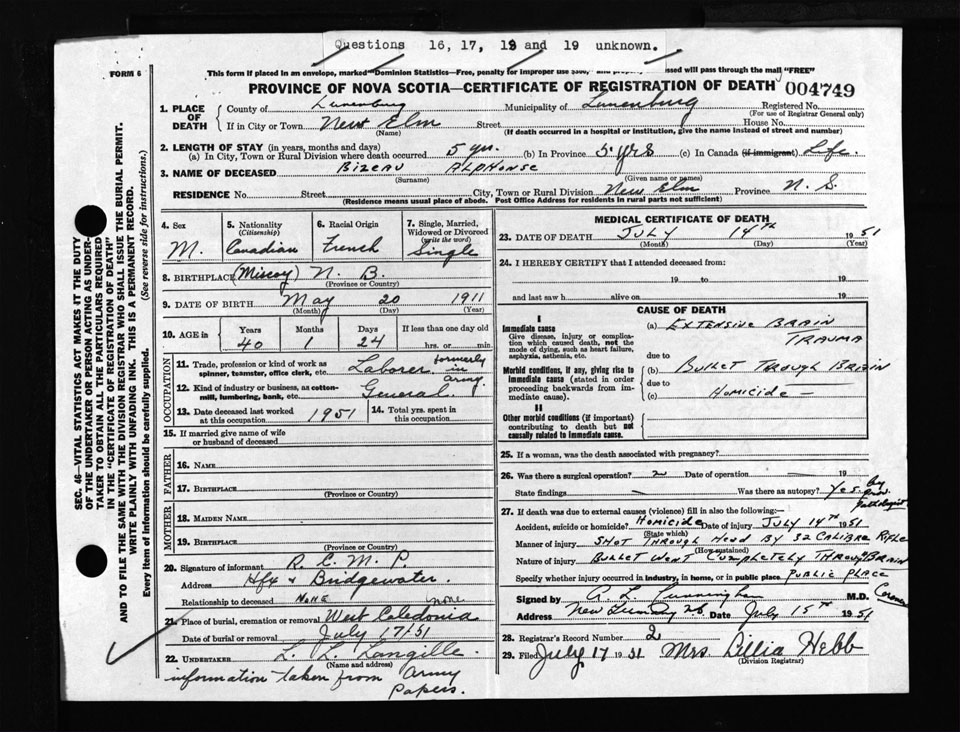 Questions 16, 17, 18 and 19 unknown.
FORM 6
This form if placed in an envelope, marked "Dominion Statistics—Free, penalty for improper use $300," and properly addressed will pass through the mail "FREE"
PROVINCE OF NOVA SCOTIA—CERTIFICATE OF REGISTRATION OF DEATH 004749
1. PLACE OF DEATH
County of Lunenburg Municipality of Lunenburg Registered No.
(For use of Registrar General only)
If in City or Town New Elm Street House No.
(Name) (If death occurred in a hospital or institution, give the name instead of street and number)
2. LENGTH OF STAY (in years, months and days)
(a) In City, Town or Rural Division where death occurred 5 yrs. (b) In Province 5 yrs (c) In Canada (if immigrant) Life.
3. NAME OF DECEASED BIZEAU ALPHONSE
(Surname) (Given name or names)
RESIDENCE No. Street City, Town or Rural Division New Elm Province N. S.
(Residence means usual place of abode. Post Office Address for residents in rural parts not sufficient)
4. Sex
M.
5. Nationality
(Citizenship)
Canadian
6. Racial Origin
French
7. Single, Married,
Widowed or Divorced
(write the word)
Single
8. BIRTHPLACE (Miscoy) N. B.
(Province or Country)
9. DATE OF BIRTH May 20 1911
(Month) (Day) (Year)
10. AGE in Years Months Days If less than one day old
40 1 24 hrs. or min.
OCCUPATION
11. Trade, profession or kind of work as
spinner, teamster, office clerk, etc. Laborer formerly in army.
12. Kind of industry or business, as cotton-
mill, lumbering, bank, etc. General.
13. Date deceased last worked
at this occupation 1951
14. Total yrs. spent in
this occupation
15. If married give name of wife
or husband of deceased
FATHER
16. NAME
17. BIRTHPLACE
(Province or Country)
MOTHER
18. MAIDEN NAME
19. BIRTHPLACE
(Province or Country)
20. Signature of informant R. C. M. P.
Address Hfx + Bridgewater.
Relationship to deceased None none
21. Place of burial, cremation or removal West Caledonia
Date of burial or removal July 17/51
22. UNDERTAKER L. L. Langille.
(Name and address)
information taken from Army
Papers.
MEDICAL CERTIFICATE OF DEATH
23. DATE OF DEATH JULY 14TH 1951
(Month) (Day) (Year)
24. I HEREBY CERTIFY that I attended deceased from:
19 to 19
and last saw h alive on 19
CAUSE OF DEATH
I
Immediate cause
Give disease, injury or complication which caused death, not the mode of dying, such as heart failure, asphyxia, asthenia, etc.
(a) EXTENSIVE BRAIN TRAUMA
due to
Morbid conditions, if any, giving rise to immediate cause (stated in order proceeding backwards from immediate cause).
(b) BULLET THROUGH BRAIN
due to
(c) HOMICIDE —
II
Other morbid conditions (if important) contributing to death but not causally related to immediate cause.
25. If a woman, was the death associated with pregnancy?
26. Was there a surgical operation? Date of operation 19
State findings — Was there an autopsy? Yes. by prov. pathologist
27. If death due to external causes (violence) fill in also the following:
Accident, suicide or homicide? Homicide Date of injury JULY 14TH 1951
(State which)
Manner of injury SHOT THROUGH HEAD BY 32 CALIBRE RIFLE
(How sustained)
Nature of injury BULLET WENT COMPLETELY THROUGH BRAIN
Specify whether injury occurred in industry, in home, or in public place PUBLIC PLACE
Signed by Cunningham M.D. Coroner
Address Date July 15TH 1951
28. Registrar's Record Number 2
29. Filed July 17 1951 Mrs. Lillia Hebb
(Division Registrar)
SEC. 46—VITAL STATISTICS ACT MAKES IT THE DUTY
OF THE UNDERTAKER OR PERSON ACTING AS UNDER-
TAKER TO OBTAIN ALL THE PARTICULARS REQUIRED
IN THE "CERTIFICATE OF REGISTRATION OF DEATH"
AND TO FILE THE SAME WITH THE DIVISION REGISTRAR WHO SHALL ISSUE THE BURIAL PERMIT.
WRITE PLAINLY WITH UNFADING INK. THIS IS A PERMANENT RECORD.
Every item of Information should be carefully supplied. (See reverse side for instructions.)